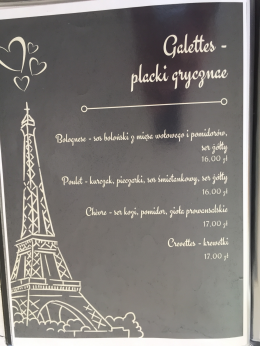 Galettes -
placki gryczane
Bolognese - sos boloński z mięsa wołowego i pomidorów,
ser żółty
16.00 zł
Poulet - kurczak, pieczarki, sos śmietankowy, ser żółty
16.00 zł
Chèvre - ser kozi, pomidor, zioła prowansalskie
17.00 zł
Crevettes - krewetki
17.00 zł